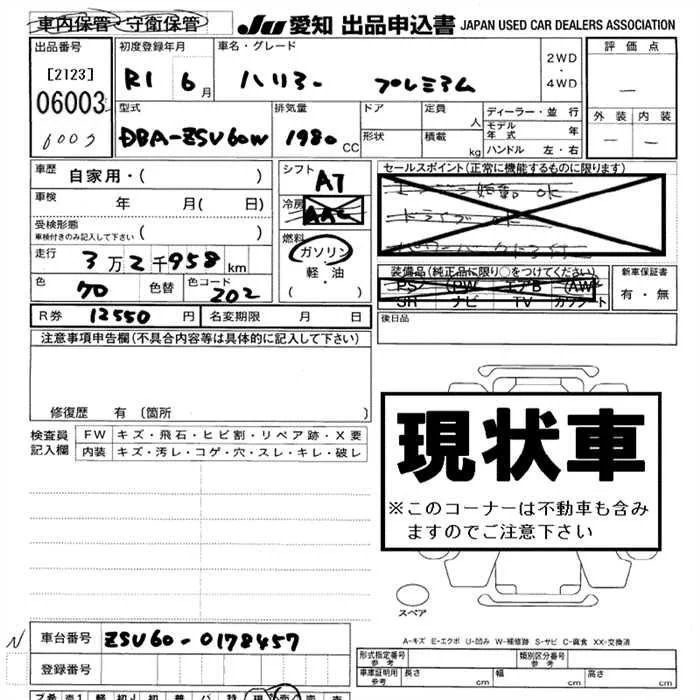 車内保管・守衛保管
JU 愛知 出品申込書 JAPAN USED CAR DEALERS ASSOCIATION
出品番号 初度登録年月 車名・グレード 評価点
[2123] R1 6月 ハリアー プレミアム 2WD・4WD
06003 —
6003
型式 排気量 ドア 定員 人 ディーラー・並行 外装 内装
DBA-ZSU60W 1980 CC 形状 積載 kg モデル年式 年 — —
ハンドル 左・右
車歴 自家用・( ) シフト AT セールスポイント(正常に機能するものに限ります)
車検 年 月( 日) 冷房 AAC エンジン始動 OK
受検形態 車検付きのみ記入して下さい ( ) ドライブ OK
燃料 ガソリン 軽・油 ( ・ )
走行 3万2千958km 装備品(純正品に限り○をつけてください) 新車保証書
色 70 色替 色コード 202 PS PW エアB AW 有・無
SR ナビ TV カワシート
R券 12550円 名変期限 月 日 後日品
注意事項申告欄(不具合内容等は具体的に記入して下さい)
修復歴 有〔箇所 〕
検査員記入欄 FW キズ・飛石・ヒビ割・リペア跡・X要
内装 キズ・汚レ・コゲ・穴・スレ・キレ・破レ
現状車
※このコーナーは不動車も含み
ますのでご注意下さい
スペア
A-キズ E-エクボ U-凹み W-補修跡 S-サビ C-腐食 XX-交換済
N 車台番号 ZSU60-0178457
登録番号
形式指定番号 参考 類別区分番号 参考
車庫証明用 参考 長さ cm 幅 cm 高さ cm